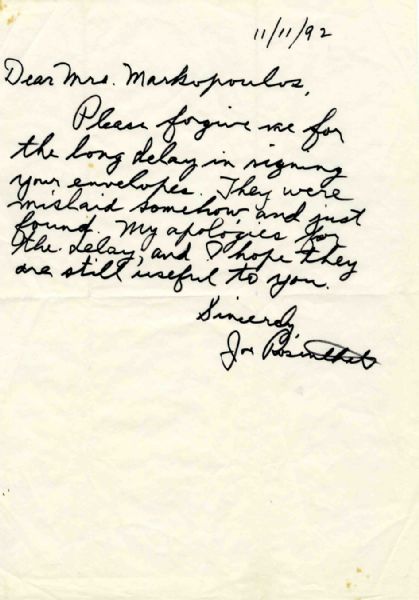 11/11/92
Dear Mrs. Markopoulos,
Please forgive me for
the long delay in signing
your envelopes. They were
mislaid somehow, and just
found. My apologies for
the delay, and I hope they
are still useful to you.
Sincerely,
Joe Rosenthal